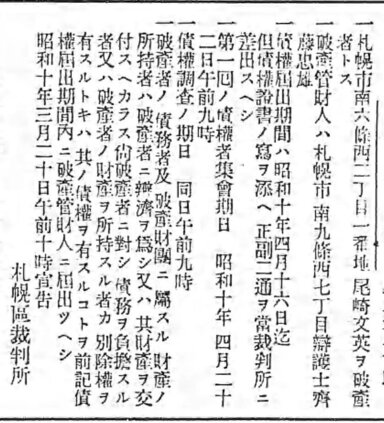 一 札幌市南六條西二丁目一番地 尾崎文英ヲ破産
者トス
一 破産管財人ハ札幌市南九條西七丁目辯護士齊
藤忠雄
一 債權屆出期間ハ昭和十年四月十六日迄
但債權證書ノ寫ヲ添ヘ正副二通ヲ當裁判所ニ
差出スヘシ
一 第一回ノ債權者集會期日 昭和十年四月二十
二日午前九時
一 債權調査ノ期日 同日午前九時
一 破産者ノ債務者及破産財團ニ屬スル財産ノ
所持者ハ破産者ニ辨濟ヲ爲シ又ハ其財産ヲ交
付スヘカラス尚破産者ニ對シ債務ヲ負擔スル
者又ハ破産者ノ財産ヲ所持スル者カ別除權ヲ
有スルトキハ其ノ債權ヲ有スルコトヲ前記債
權屆出期間內ニ破産管財人ニ屆出ツヘシ
昭和十年三月二十日午前十時宣告
札幌區裁判所